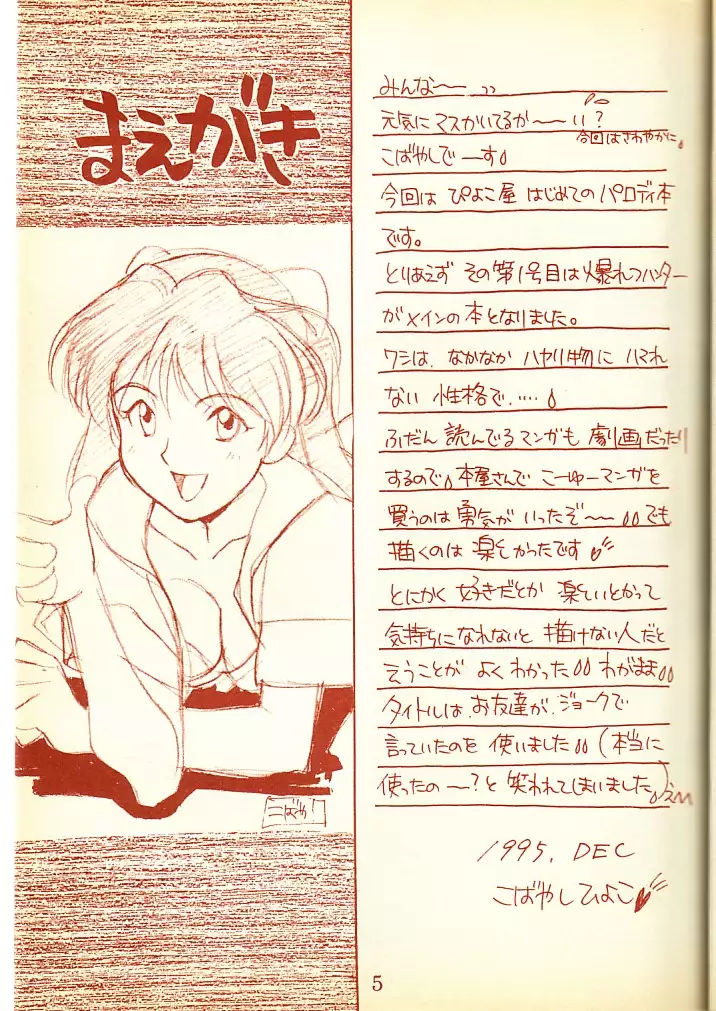 まえがき
みんな〜〜っっ
元気に マスかいてるか〜〜い?
今回はさわやかに
こばやしでーす
今回は ぴよこ屋 はじめての パロディ本
です。
とりあえず その第1号目は 爆れつハンター
がメインの本となりました。
ワシは、なかなか ハヤリ物に ハマれ
ない 性格で.....
ふだん 読んでるマンガも 劇画だったり
するので 本屋さんで こーゆーマンガを
買うのは 勇気が いったぞ〜〜 でも
描くのは 楽しかったです
とにかく 好きだとか 楽しいとかって
気持ちになれないと 描けない人だと
そうことが よくわかった わがまま
タイトルは、お友達が、ジョークで
言っていたのを 使いました (本当に
使ったの〜? と 笑われてしまいました)
1995. DEC
こばやしひよこ
こばやし
5